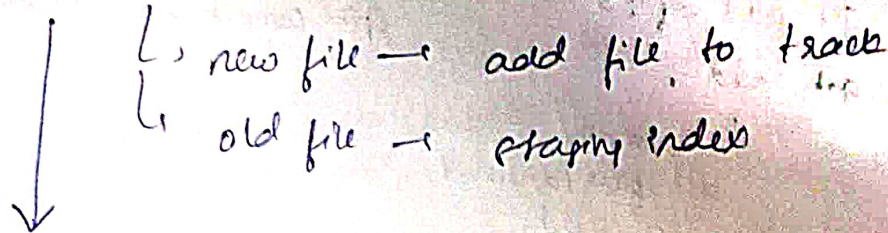 ↳ new file → add file to track
↳ old file → staging index